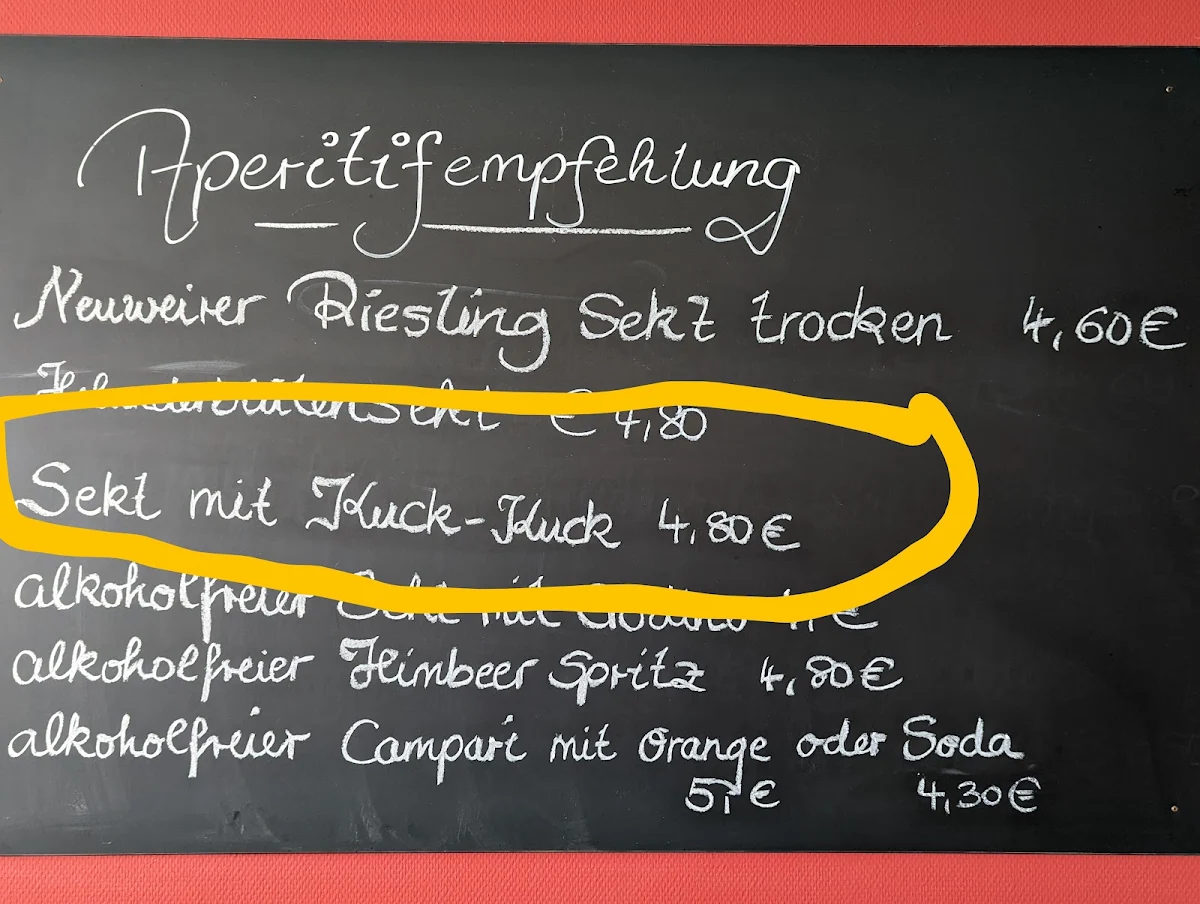 Aperitifempfehlung
Neuweirer Riesling Sekt trocken 4,60€
Sekt € 4,80
Sekt mit Kuck-Kuck 4,80€
alkoholfreier Sekt mit
alkoholfreier Himbeer Spritz 4,80€
alkoholfreier Campari mit Orange oder Soda
5,-€ 4,30€